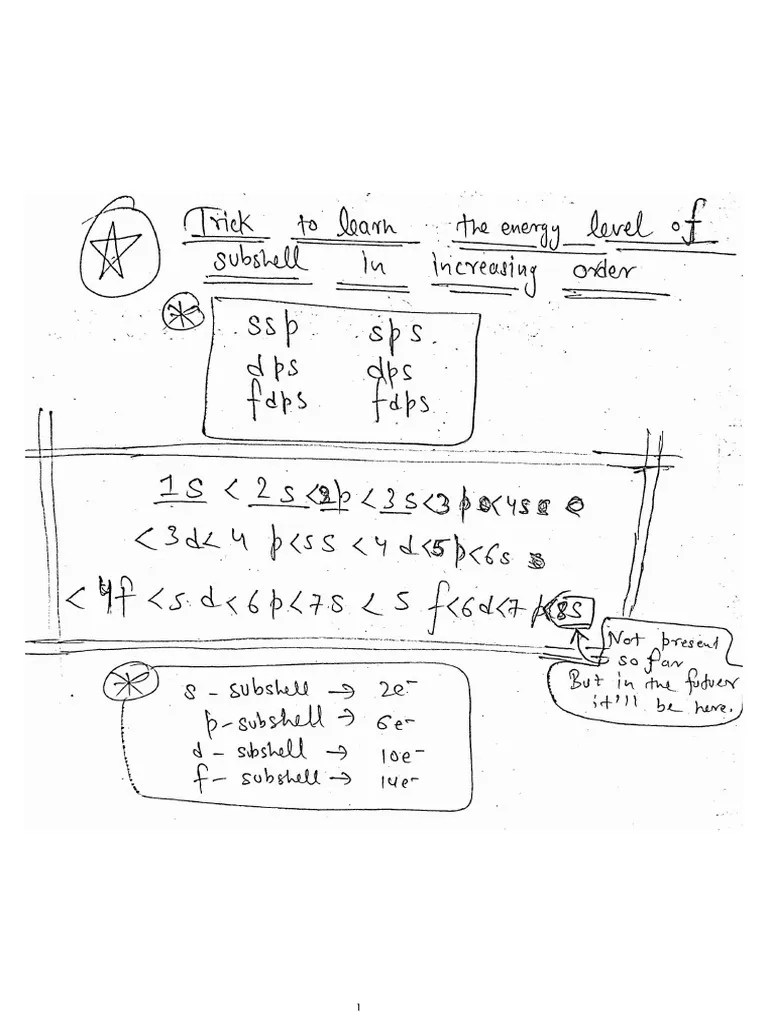 Trick to learn the energy level of
subshell in increasing order
ssp sps
dps dps
fdps fdps
1s < 2s < 2p < 3s < 3p < 4s
< 3d < 4p < 5s < 4d < 5p < 6s
< 4f < 5d < 6p < 7s < 5f < 6d < 7p < 8s
Not present
so far
But in the futuer
it'll be here.
s - subshell → 2e⁻
p - subshell → 6e⁻
d - sbshell → 10e⁻
f - subshell → 14e⁻
1